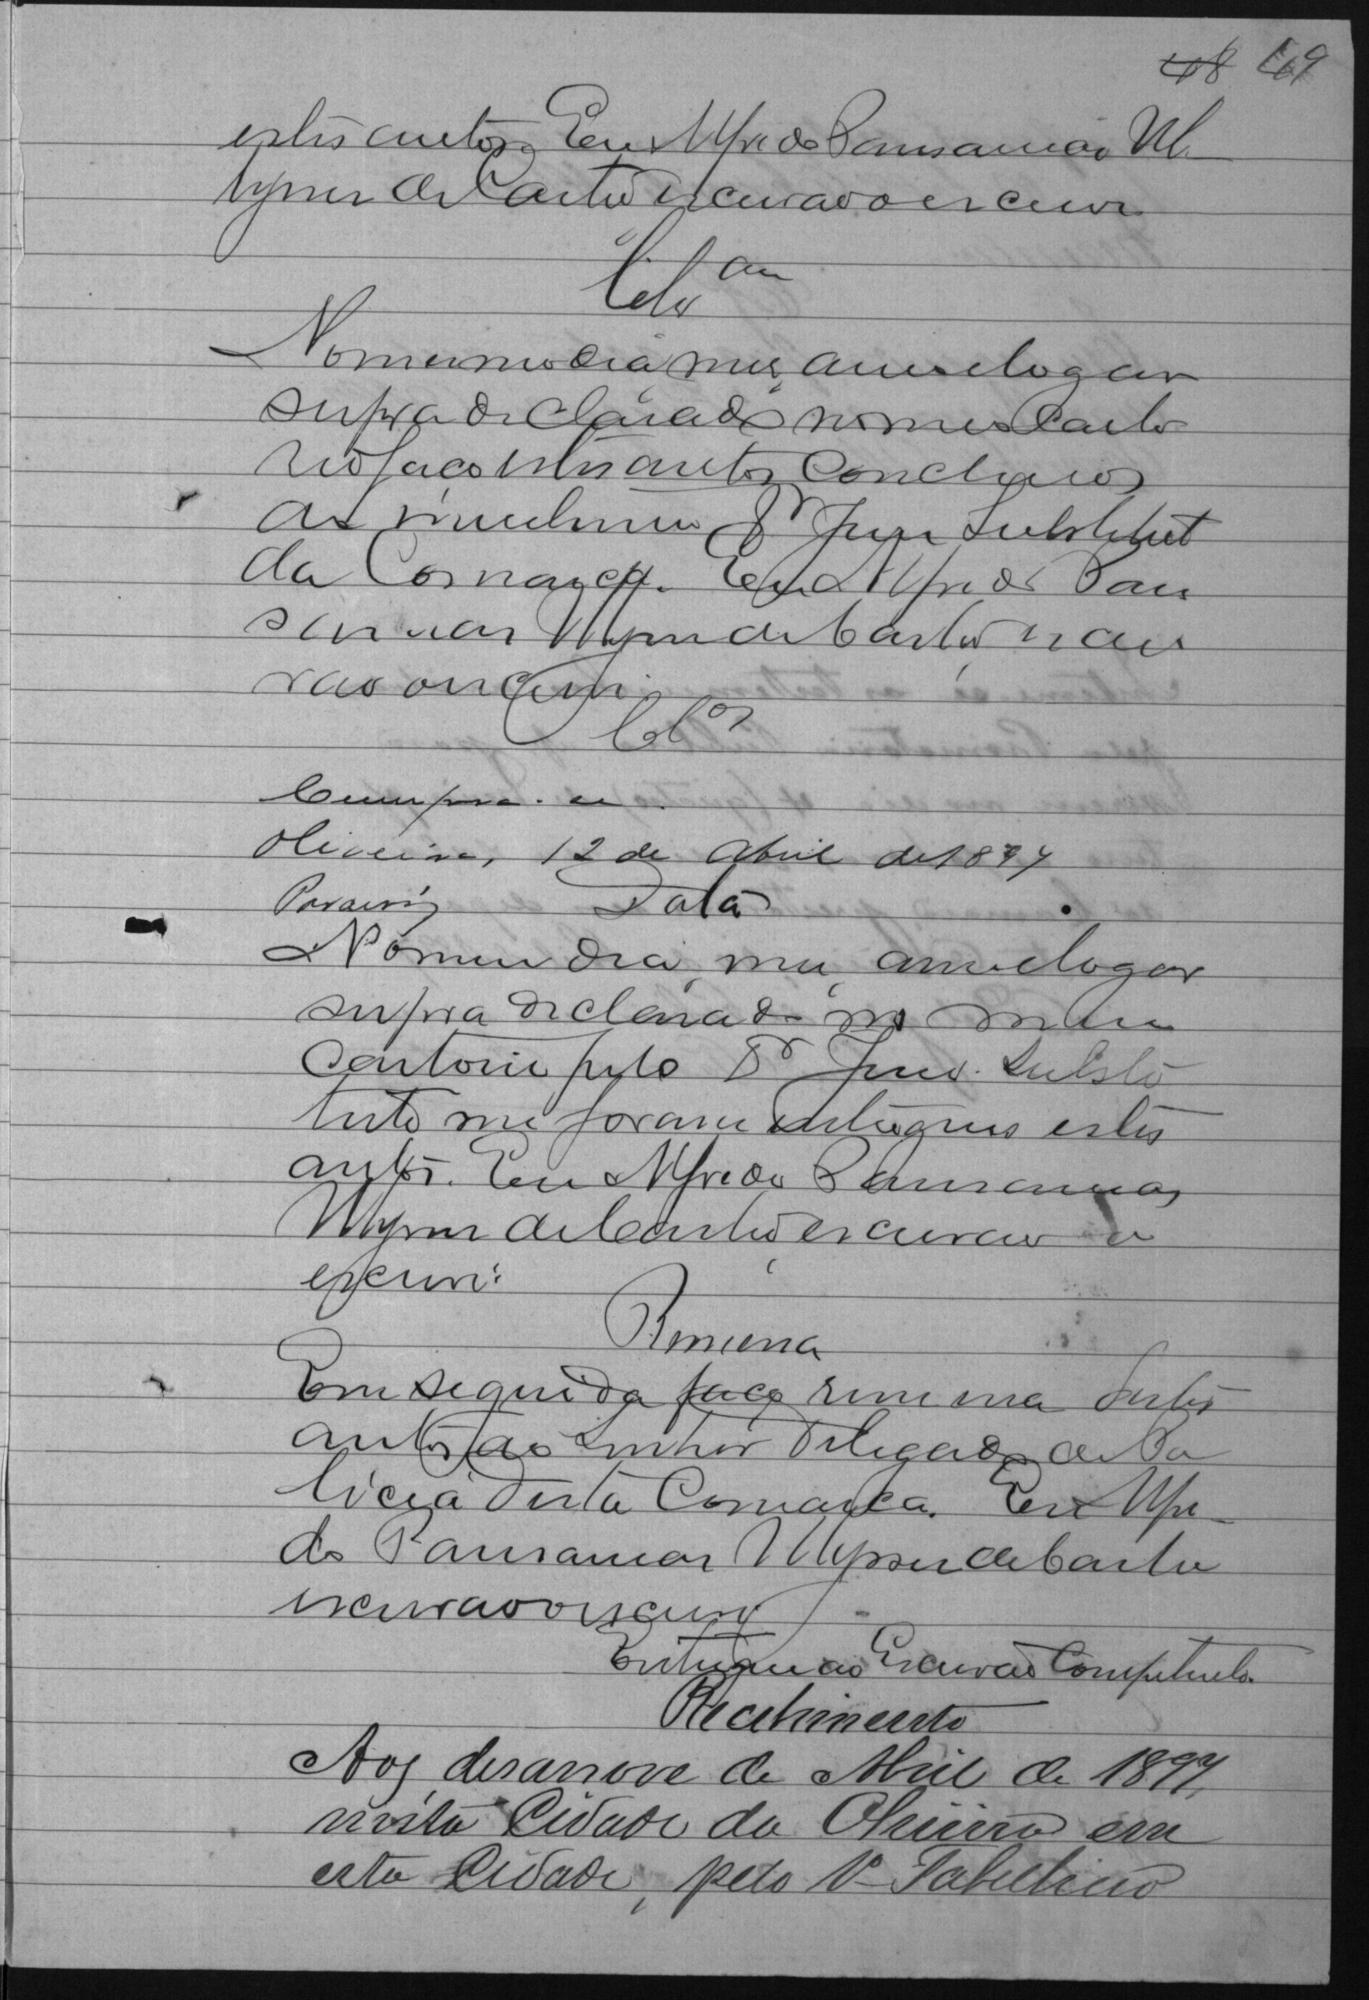 48 49
estes autos. Eu Alfredo Pausanias Ul-
lysses de Castro escrivao o escrevi
Clsam
No mesmo dia, mes, anno e logar
supra declarado no meu carto
rio faço estes autos conclusos
ao Dr Juiz Substitut
da Comarca. Eu Alfredo Pau
sanias Ulysses de Castro escri
vao o escrevi
Clos
Cumpra-se.
Oliveira, 12 de Abril de 1894
Data
No mesmo dia, mes, anno e logar
supra declarado no meu
cartorio pelo Dr Juiz Substi
tuto me foram entregues estes
autos. Eu Alfredo Pausanias
Ulysses de Castro escrivao o
escrevi.
Remessa
Em seguida faço remessa destes
autos ao Senhor Delegado de Po
licia desta Comarca. Eu Alfre-
do Pausanias Ulysses de Castro
escrivao o escrevi
Entregue ao Escrivão Competente.
Recebimento
Aos desanove de Abril de 1894,
nesta Cidade da Oliveira em
esta Cidade, pelo 1º Tabelliao